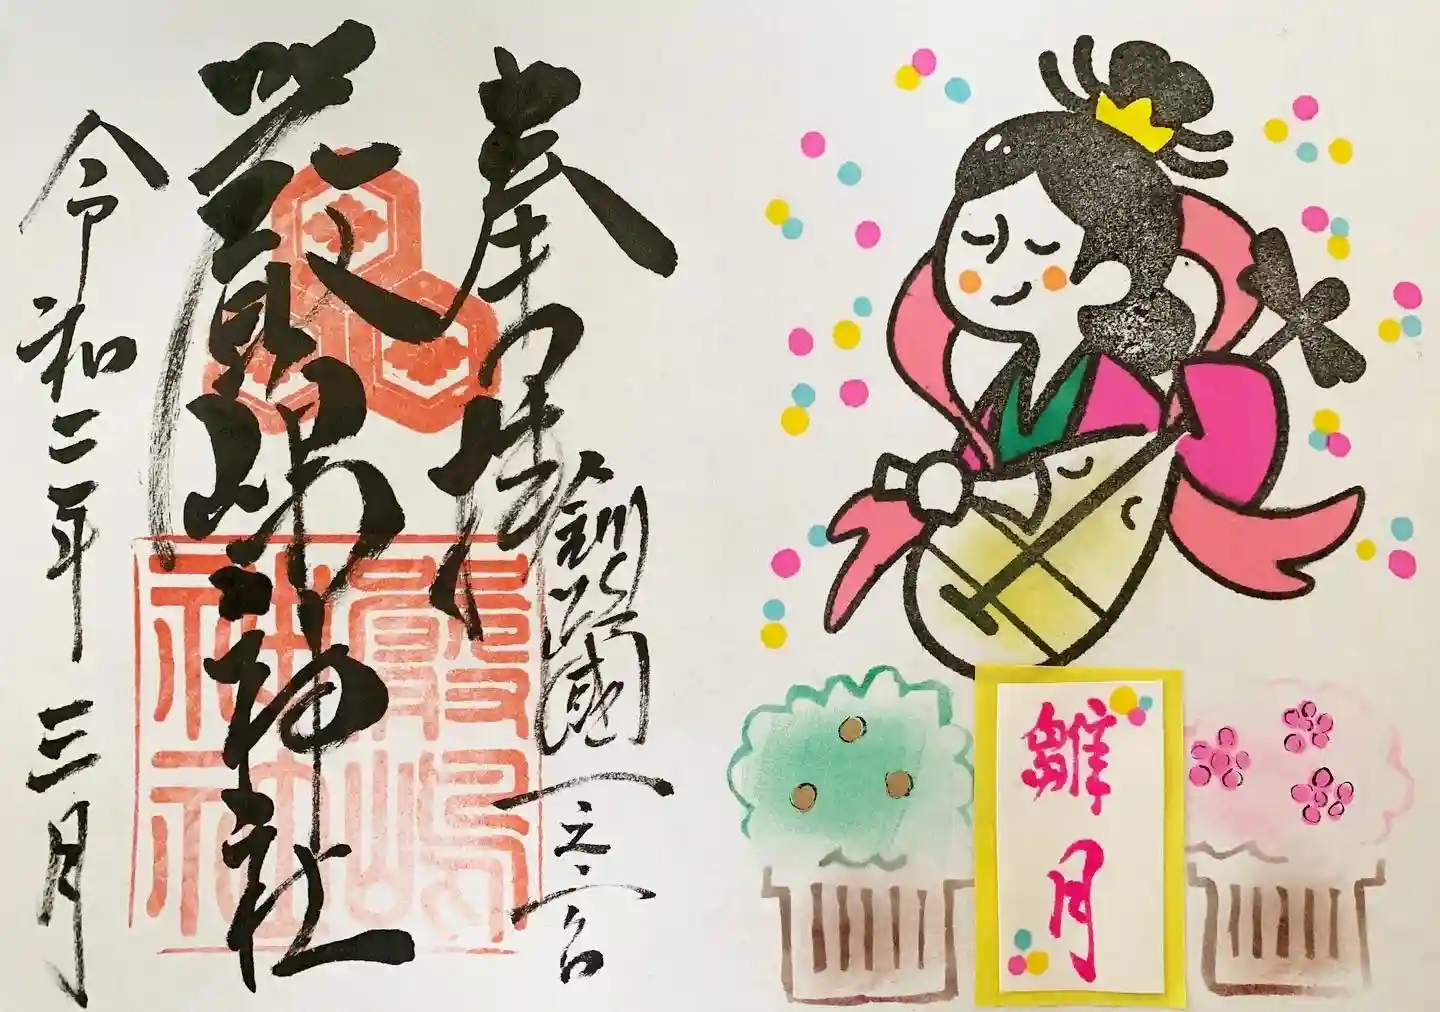 雛月
釧路國一之宮
奉拝
嚴嶋神社
嚴嶋
神社
令和二年 三月